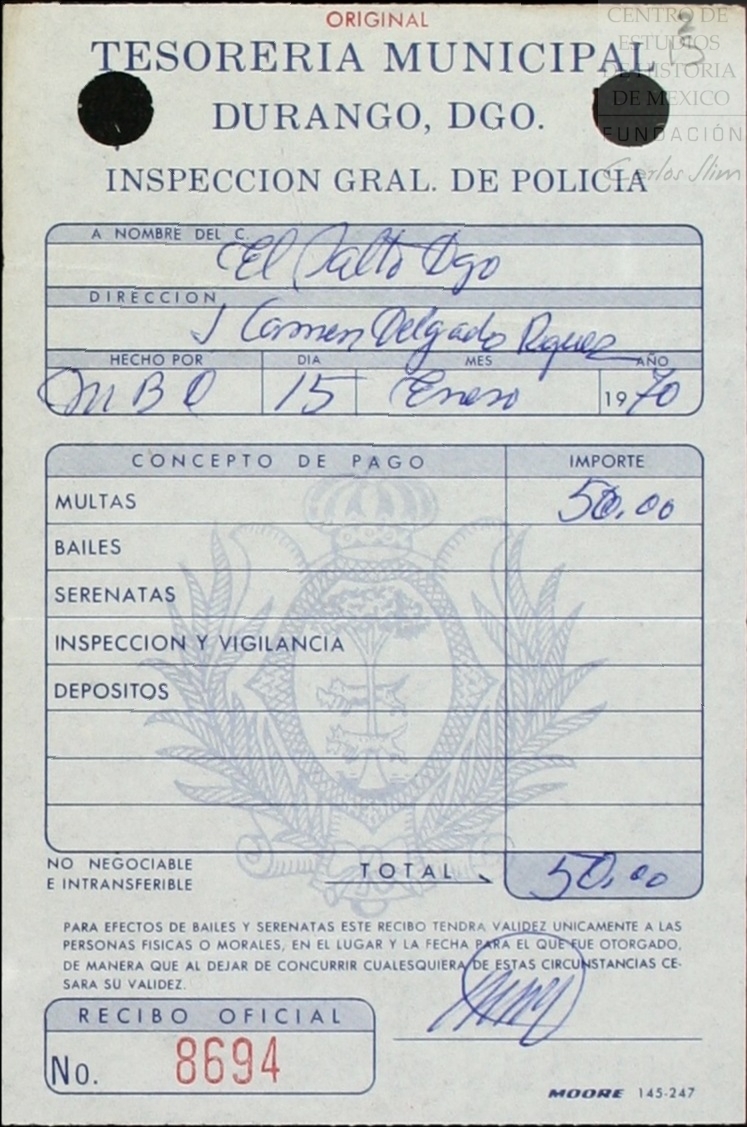 ORIGINAL
TESORERIA MUNICIPAL
DURANGO, DGO.
INSPECCION GRAL. DE POLICIA
CENTRO DE
ESTUDIOS
DE HISTORIA
DE MEXICO
FUNDACIÓN
Carlos Slim
A NOMBRE DEL C.
El Salto Dgo
DIRECCION
J Carmen Delgado
HECHO POR DIA MES AÑO
15 Enero 1970
CONCEPTO DE PAGO IMPORTE
MULTAS 50.00
BAILES
SERENATAS
INSPECCION Y VIGILANCIA
DEPOSITOS
NO NEGOCIABLE
E INTRANSFERIBLE
TOTAL 50.00
PARA EFECTOS DE BAILES Y SERENATAS ESTE RECIBO TENDRA VALIDEZ UNICAMENTE A LAS
PERSONAS FISICAS O MORALES, EN EL LUGAR Y LA FECHA PARA EL QUE FUE OTORGADO,
DE MANERA QUE AL DEJAR DE CONCURRIR CUALESQUIERA DE ESTAS CIRCUNSTANCIAS CE-
SARA SU VALIDEZ.
RECIBO OFICIAL
No. 8694
MOORE 145-247